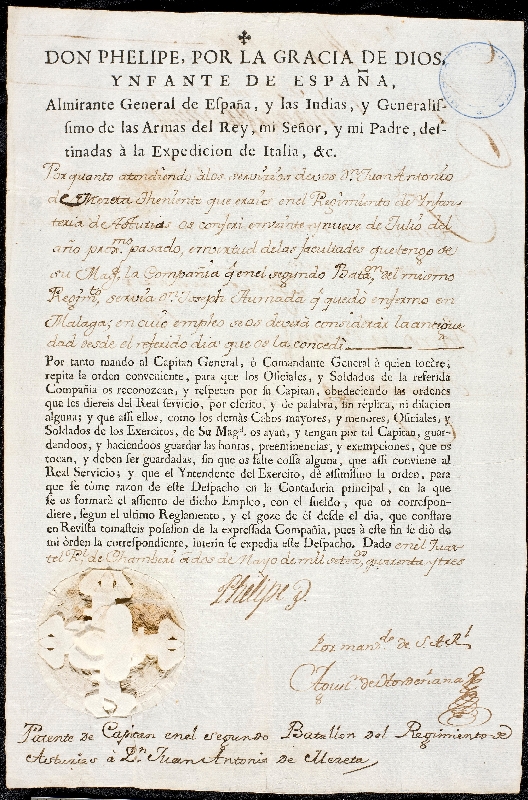 DON PHELIPE, POR LA GRACIA DE DIOS,
YNFANTE DE ESPAÑA,
Almirante General de España, y las Indias, y Generalis-
simo de las Armas del Rey, mi Señor, y mi Padre, des-
tinadas à la Expedicion de Italia, &c.
Por quanto atendiendo à los servicios de vos Dn. Juan Antonio
de Mereta Theniente que erais en el Regimiento de Ynfan-
teria de Asturias os conferi en veinte y nueve de Julio del
año prox.mo pasado, en virtud de las facultades que tengo de
su Magd. la Compañia q en el segundo Batan. del mismo
Regimto. servia Dn. Joseph Ahumada q quedò enfermo en
Malaga; en cuio empleo se os deverà considerar la antigue-
dad desde el referido dia que os la concedi.
Por tanto mando al Capitan General, ò Comandante General à quien tocàre;
repita la orden conveniente, para que los Oficiales, y Soldados de la referida
Compañia os reconozcan, y respeten por su Capitan, obedeciendo las ordenes
que les diereis del Real servicio, por escrito, y de palabra, sin rèplica, ni dilacion
alguna; y que assi ellos, como los demàs Cabos mayores, y menores, Oficiales, y
Soldados de los Exercitos, de Su Magd. os ayan, y tengan por tal Capitan, guar-
dandoos, y haciendoos guardar las honras, preeminencias, y exempciones, que os
tocan, y deben ser guardadas, sin que os falte cosa alguna, que assi conviene al
Real Servicio; y que el Yntendente del Exercito, dè assimismo la orden, para
que se tòme razon de este Despacho en la Contaduria principal, en la que
se os formarà el assiento de dicho Empleo, con el sueldo, que os correspon-
diere, segun el ultimo Reglamento, y el goze de èl desde el dia, que constare
en Revista tomasteis possesion de la expressada Compañia, pues à este fin se diò de
mi òrden la correspondiente, interin se expedia este Despacho. Dado en el Quar-
tel Rl. de Chamberi à dos de Mayo de mil setezos. quarenta y tres
Phelipe
Por mando. de S. A. Rl.
Patente de Capitan en el segundo Batallon del Regimiento de
Asturias à Dn. Juan Antonio de Mereta